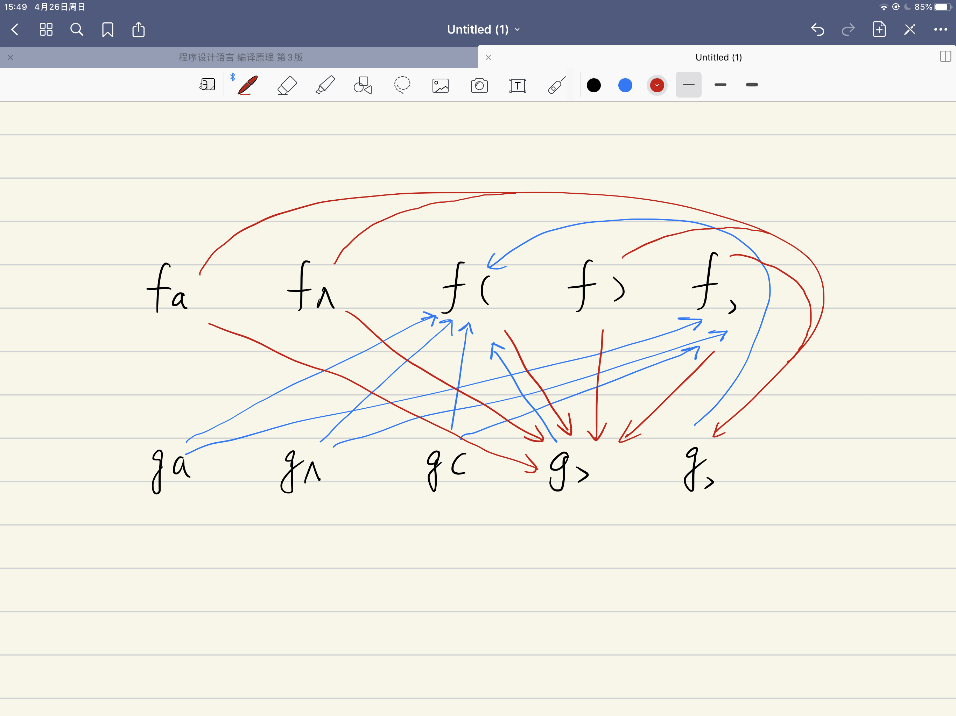 15:49 4月26日周日
85%
Untitled (1)
程序设计语言 编译原理 第3版
Untitled (1)
T
fa f∧ f( f) f,
ga g∧ g( g) g,